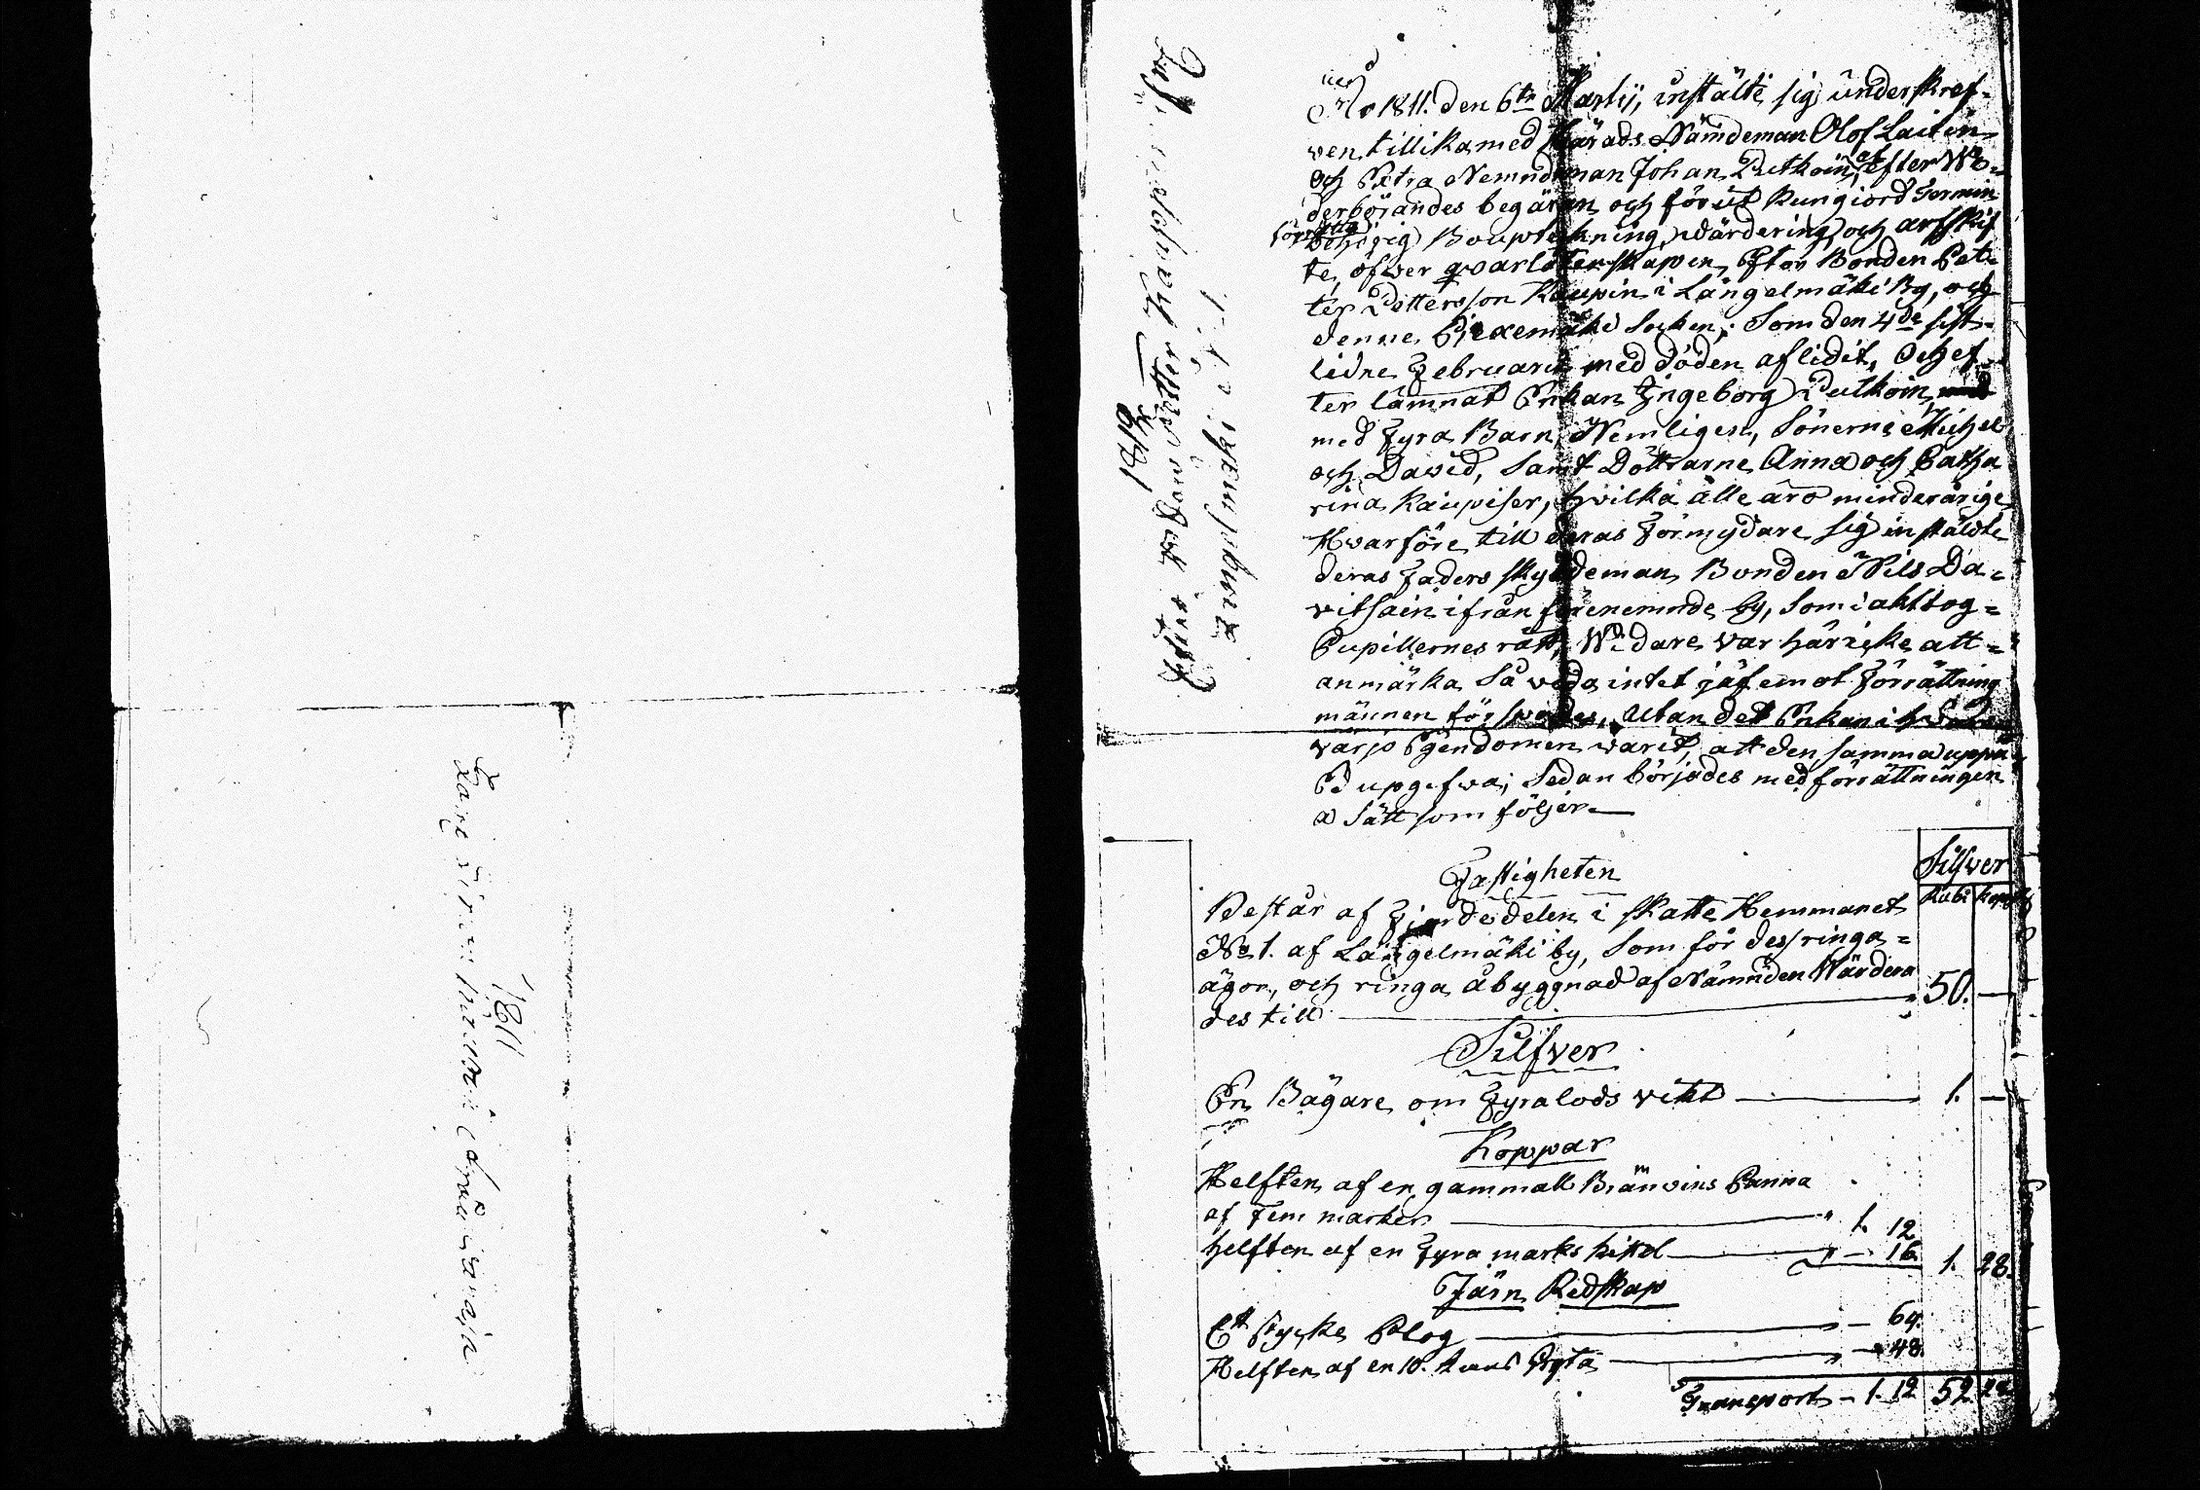 1811
A:o 1811. den 6te Martij, instälte sig underskref-
ven tillika med Härads Nämdeman Olof Laitin
och Extra Nemndeman Johan Putkoin, efter We-
derbörandes begäran och förut kungiord Termin
förrätta Bouptekning, Wärdering och arfskif
te, öfwer qvarlåtenskapen efter Bonden Pet-
ter Pettersson Kaupin i Längelmäki By, och
denne Piexemäki Socken; Som den 4de sist-
ledne Februarii med döden aflidit, Och ef-
ter lämnat Enkan Ingeborg Putkoin,
med Fyra Barn, Nemligen, Sönerne Michel
och David, Samt Döttrarne Anna och Catha
rina Kaupiser, hvilka alle äro minderårige
Hvarföre till deras Förmydare sig instälde
deras Faders skyldeman Bonden Nils Da-
vitsain ifrån förenemnde by, Som i akttog-
Pupillernes rätt, Widare var här icke att-
anmärka Så vida intet jäf emot Förrättning
männen försports, Utan det Enkan i hvars
värjo Egendomen warit, att den samma uppå
Ed upgifwa; Sedan börjades med förrättningen
a Sätt som följer
Silfver
Rub: Kop:
Fastigheten
Består af Fjerdedelen i skatte Hemmanet
No 1. af Längelmäki by, Som för des ringa-
ägor, och ringa åbyggnad af Nämnden Wärdera
des till 50. —
Silfver
En Bägare om Fyra lods vikt 1. —
Koppar
Helften af en gammall Bränvins Panna
af Fem marker " 1. 12
helften af en Fyra marks kittel " — 16. 1. 28.
Järn Redskap
Ett stycke Plog " — 64.
Helften af en 10. kans Gryta " — 48.
Transport — 1. 12 52 28
Längelmäki
Petter Pettersson
1812